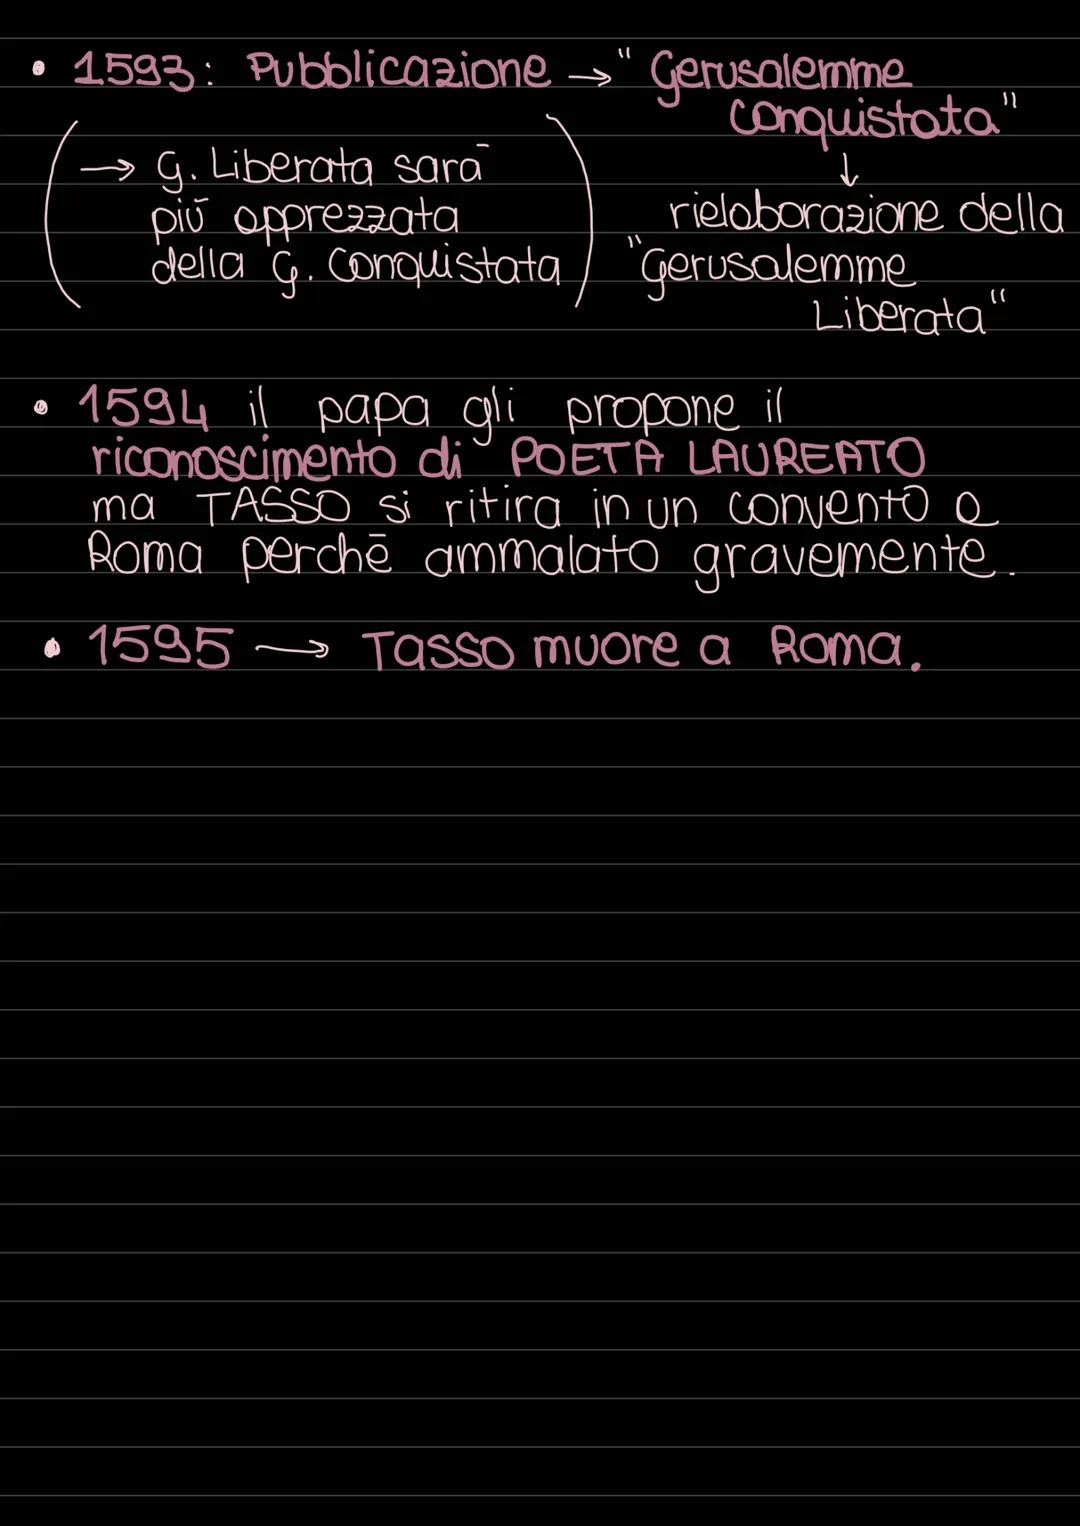 • 1593: Pubblicazione → "Gerusalemme
conquistata"
(→ G. Liberata sarà
più apprezzata
della G. Conquistata)
↓
rielaborazione della
"Gerusalemme
Liberata"
• 1594 il papa gli propone il
riconoscimento di POETA LAUREATO
ma TASSO si ritira in un convento a
Roma perchē ammalato gravemente.
• 1595 → Tasso muore a Roma.